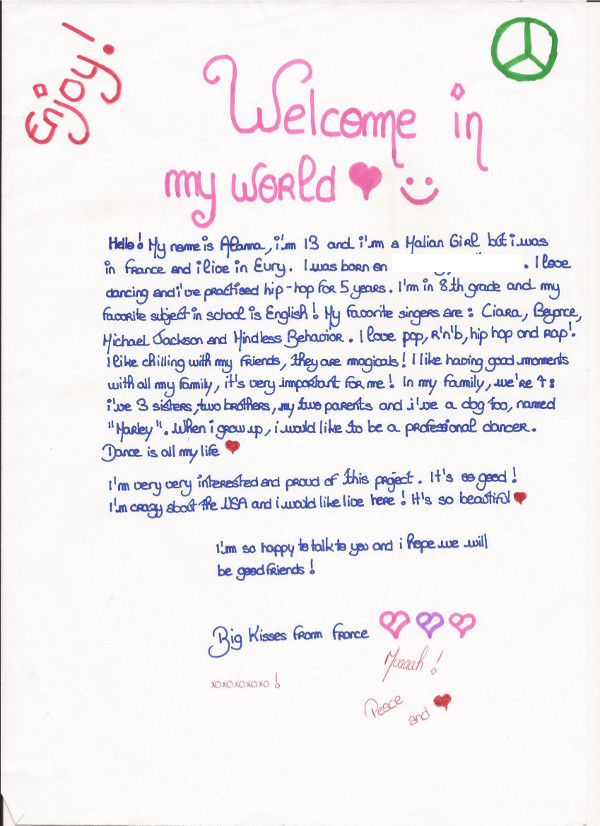 Enjoy!
Welcome in
my world
Hello! My name is Alanna, i'm 13 and i'm a Malian Girl but i was
in France and i live in Evry. I was born on . I love
dancing and i've practised hip-hop for 5 years. I'm in 8th grade and my
favorite subject in school is English! My favorite singers are: Ciara, Beyonce,
Michael Jackson and Mindless Behavior. I love pop, R'n'b, hip hop and Rap!
I like chilling with my friends, they are magicals! I like having good moments
with all my family, it's very important for me! In my family, we're
i've 3 sisters, two brothers, my two parents and i've a dog too, named
"Marley". When i grow up, i would like to be a professional dancer.
Dance is all my life
I'm very very interested and proud of this project. It's so good!
I'm crazy about the USA and i would like live here! It's so beautiful
I'm so happy to talk to you and i hope we will
be good friends!
Big Kisses from France
Muaaah!
xoxoxoxoxo!
Peace
and